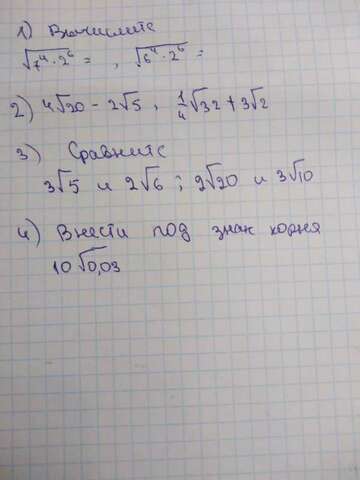 1) Вычислите
√7⁴·2⁶ = , √6⁴·2⁶ =
2) 4√20 - 2√5, 1/4√32 + 3√2
3) Сравните
3√5 и 2√6; 2√20 и 3√10
4) Внести под знак корня
10√0,03